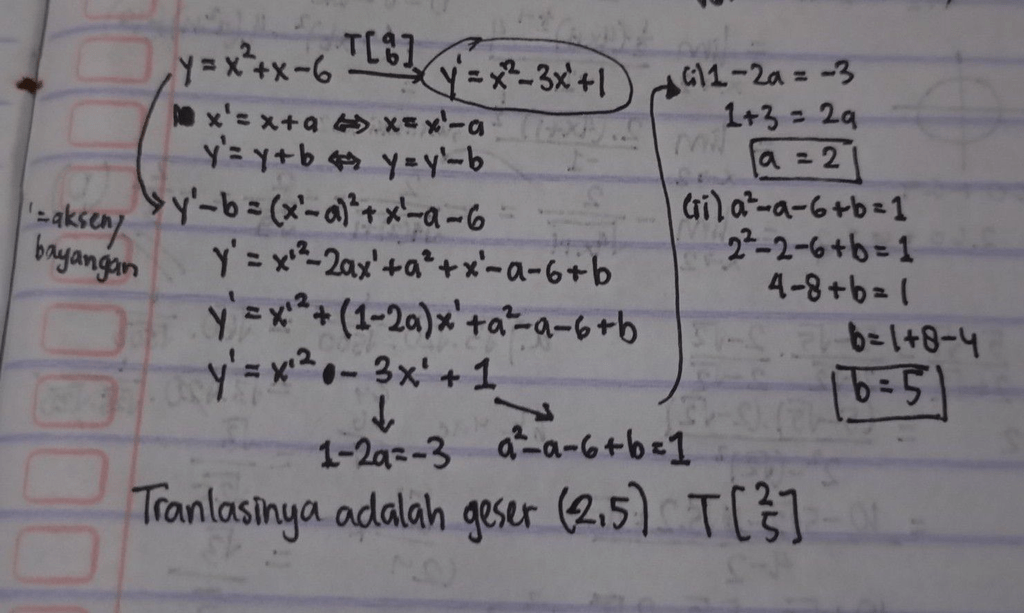 y = x²+x-6 T[a b] → y' = x'²-3x'+1
x' = x+a ⇔ x = x'-a
y' = y+b ⇔ y = y'-b
' = aksen/
bayangan
y'-b = (x'-a)²+x'-a-6
y' = x'²-2ax'+a²+x'-a-6+b
y' = x'²+(1-2a)x'+a²-a-6+b
y' = x'² - 3x' + 1
↓ ↘
1-2a=-3 a²-a-6+b=1
(i) 1-2a = -3
1+3 = 2a
a = 2
(ii) a²-a-6+b=1
2²-2-6+b=1
4-8+b=1
b=1+8-4
b=5
Tranlasinya adalah geser (2,5) T[2 5]